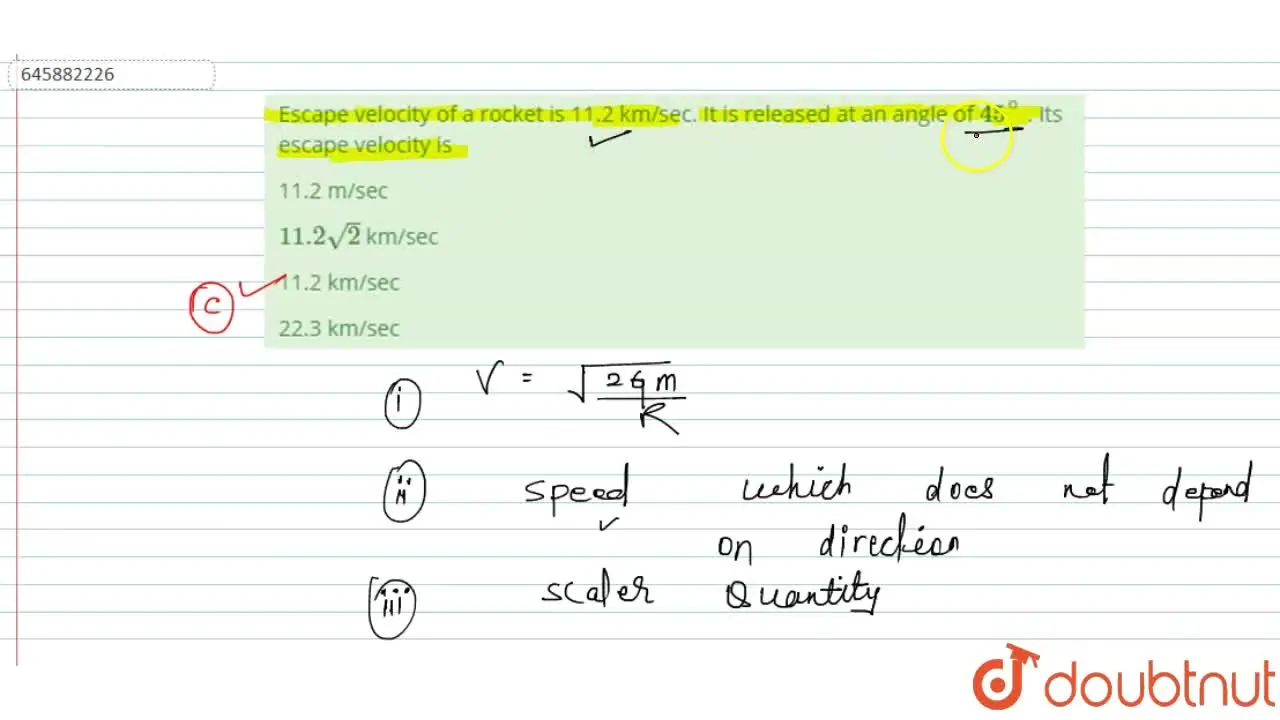 645882226
Escape velocity of a rocket is 11.2 km/sec. It is released at an angle of 45°. Its
escape velocity is
11.2 m/sec
11.2√2 km/sec
C 11.2 km/sec
22.3 km/sec
i V = √2Gm/R
ii speed which does not depend
on direction
iii scaler Quantity
doubtnut